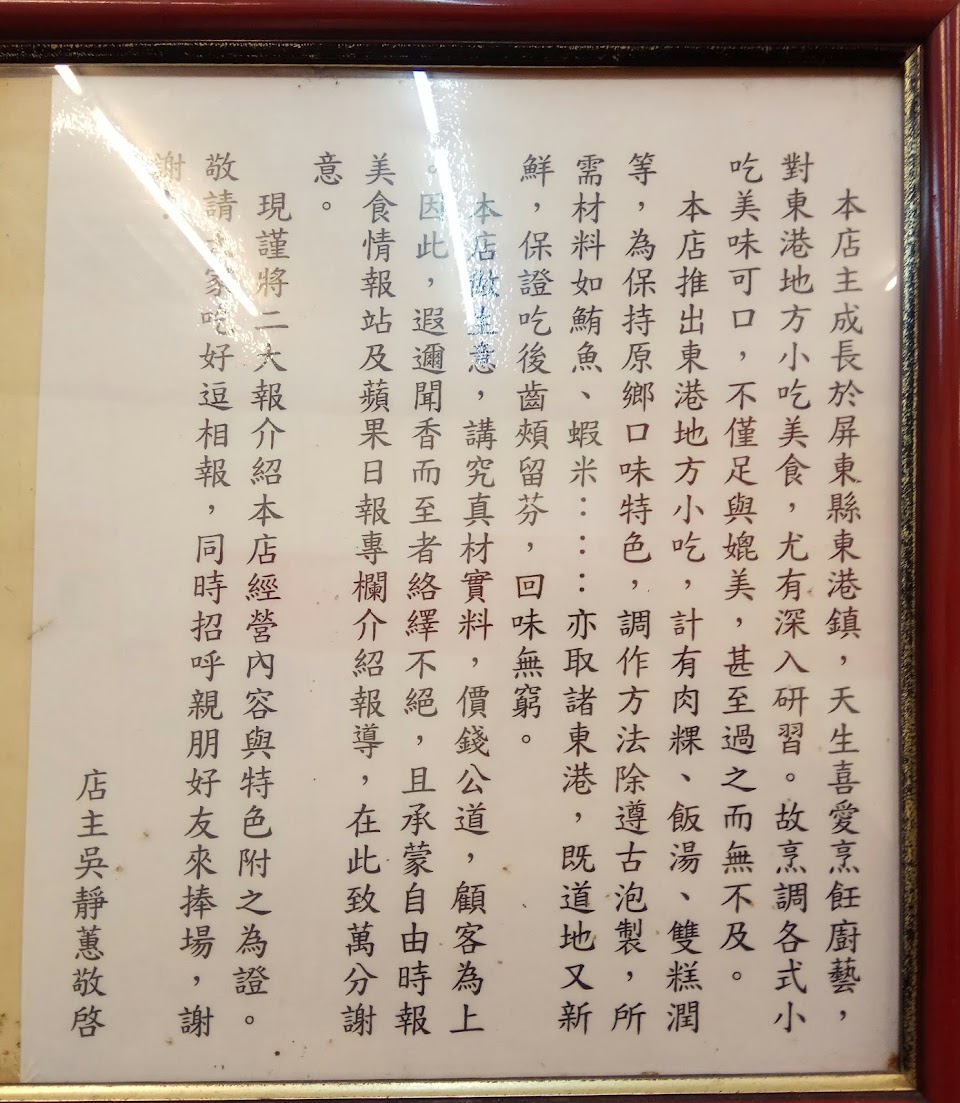 本店主成長於屏東縣東港鎮，天生喜愛烹飪廚藝，
對東港地方小吃美食，尤有深入研習。故烹調各式小
吃美味可口，不僅足與媲美，甚至過之而無不及。
本店推出東港地方小吃，計有肉粿、飯湯、雙糕潤
等，為保持原鄉口味特色，調作方法除遵古泡製，所
需材料如鮪魚、蝦米：：：亦取諸東港，既道地又新
鮮，保證吃後齒頰留芬，回味無窮。
本店做生意，講究真材實料，價錢公道，顧客為上
。因此，遐邇聞香而至者絡繹不絕，且承蒙自由時報
美食情報站及蘋果日報專欄介紹報導，在此致萬分謝
意。
現謹將二大報介紹本店經營內容與特色附之為證。
敬請大家吃好逗相報，同時招呼親朋好友來捧場，謝
謝！
店主吳靜蕙敬啓